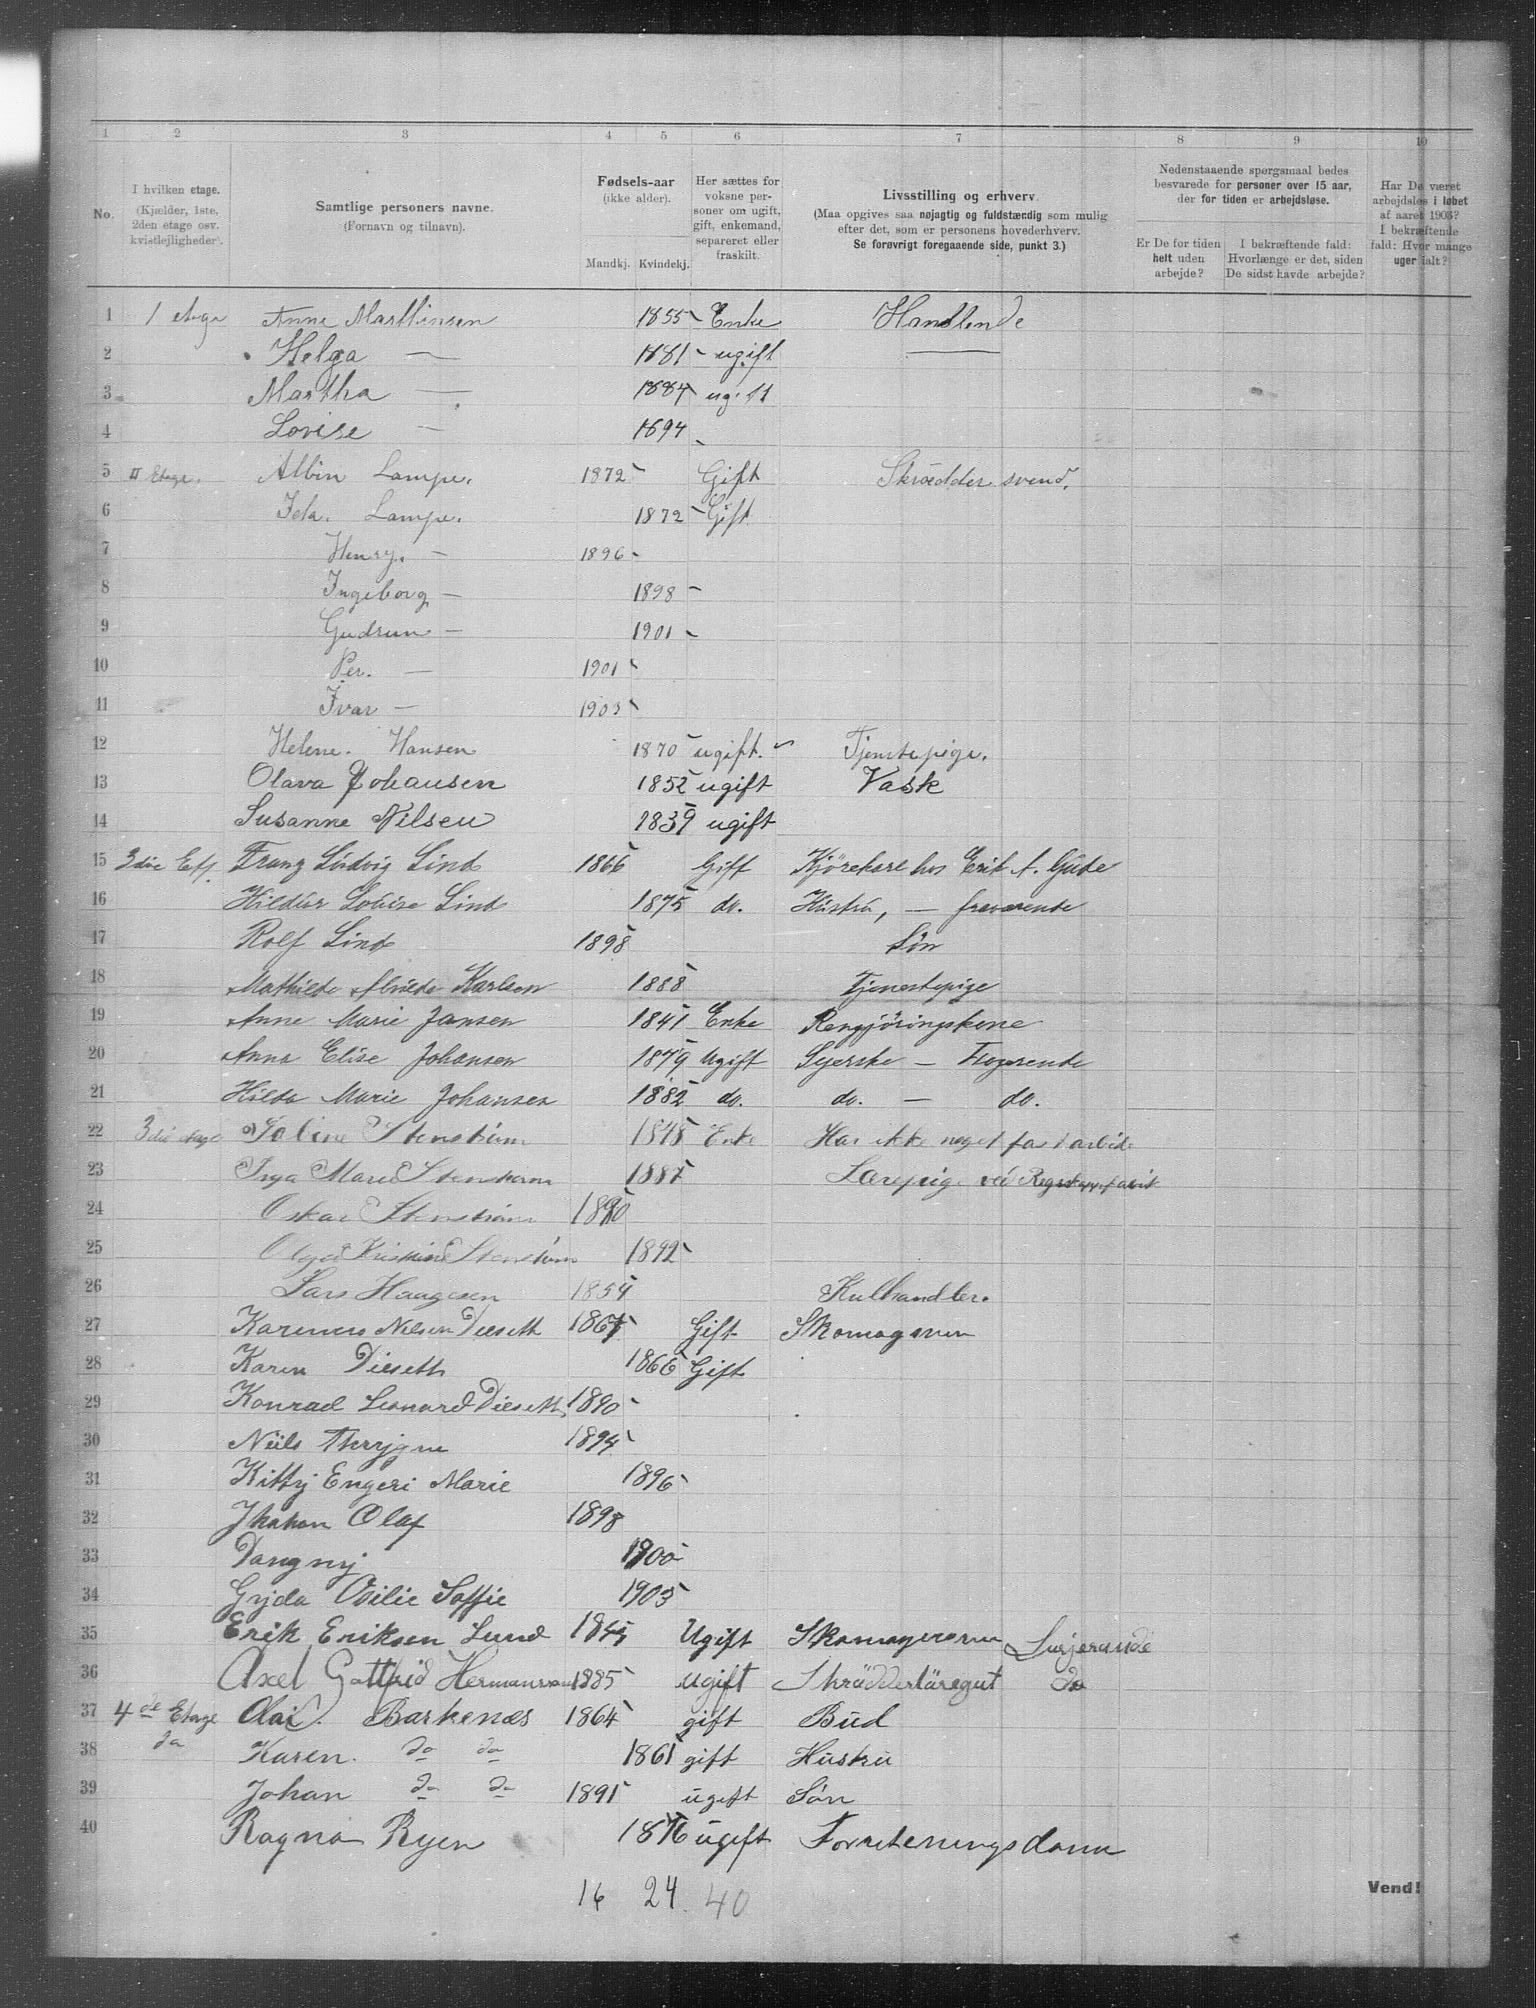 1 2 3 4 5 6 7 8 9 10
No.
I hvilken etage.
(Kjælder, 1ste, 2den etage osv. kvistlejligheder).
Samtlige personers navne.
(Fornavn og tilnavn).
Fødsels-aar
(ikke alder).
Mandkj. Kvindekj.
Her sættes for voksne personer om ugift, gift, enkemand, separeret eller fraskilt.
Livsstilling og erhverv.
(Maa opgives saa nøjagtig og fuldstændig som mulig efter det, som er personens hovederhverv. Se forøvrigt foregaaende side, punkt 3.)
Nedenstaaende spørgsmaal bedes besvarede for personer over 15 aar, der for tiden er arbejdsløse.
Er De for tiden helt uden arbejde?
I bekræftende fald: Hvorlænge er det, siden De sidst havde arbejde?
Har De været arbejdsløs i løbet af aaret 1903? I bekræftende fald: Hvor mange uger ialt?
1 1 Etage Anne Marthinsen 1855 Enke Handlende
2 Helga — 1881 ugift —
3 Martha — 1884 ugift
4 Lovise — 1894
5 II Etage. Albin Lampe. 1872 Gift Skrædder svend.
6 Ida. Lampe. 1872 Gift
7 Henry. — 1896
8 Ingeborg — 1898
9 Gudrun — 1901
10 Per. — 1901
11 Ivar — 1903
12 Helene. Hansen 1870 ugift. Tjenstepige.
13 Olava Johansen 1852 ugift Vask
14 Susanne Nilsen 1839 ugift
15 3die Etg. Franz Ludvig Lind 1866 Gift Kjørekarl hos Erik A. Gude
16 Hildur Lovise Lind 1875 do. Hustru, — fraværende
17 Rolf Lind 1898 Søn
18 Mathilde Alvilde Karlsen 1888 Tjenestepige
19 Anne Marie Jansen 1841 Enke Rengjøringskone
20 Anna Elise Johansen 1879 Ugift Syerske — Logerende
21 Hilda Marie Johansen 1882 do. do. — do.
22 3die etage Tobine Stenstrøm 1848 Enke Har ikke noget fast arbide
23 Inga Marie Stenstrøm 1887 Lærepige ved
24 Oskar Stenstrøm 1890
25 Olga Kristine Stenstrøm 1892
26 Lars Haagesen 1854 Kulhandler.
27 Karenus Nilsen Dieseth 1867 Gift Skomagersven
28 Karen Dieseth 1866 Gift
29 Konrad Leonard Dieseth 1890
30 Niils Thorygne 1894
31 Kitty Engeri Marie 1896
32 Jhakon Olaf 1898
33 Dangny 1900
34 Gyda Osilie Soffie 1903
35 Erik Eriksen Lund 1845 Ugift Skomagersven Losjerende
36 Axel Gottfrid Hermansson 1885 ugift Skräddarläregut do
37 4de Etage Olai. Barkenæs 1864 gift Bud
38 da Karen. do do 1861 gift Hustru
39 Johan do do 1891 ugift Søn
40 Ragna Ryen 1876 ugift Forreteningsdame
16 24 40
Vend!